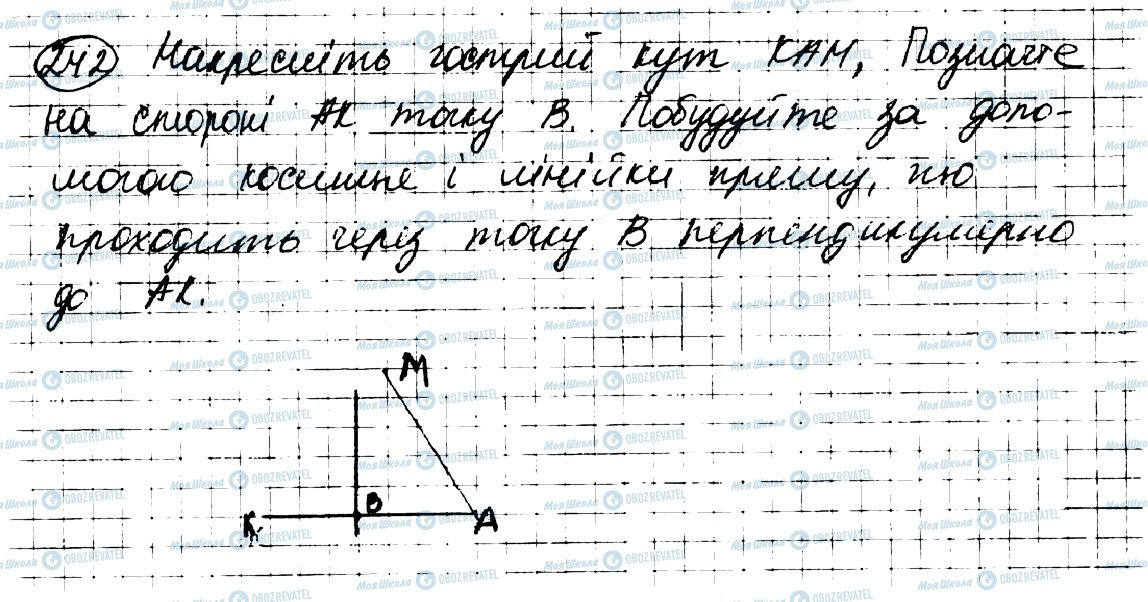 242 Накресліть гострий кут КАМ, Позначте
на стороні АК точку В. Побудуйте за допо-
могою косинця і лінійки пряму, що
проходить через точку В перпендикулярно
до АК.
М
В
К
А
МояШкола OBOZREVATEL